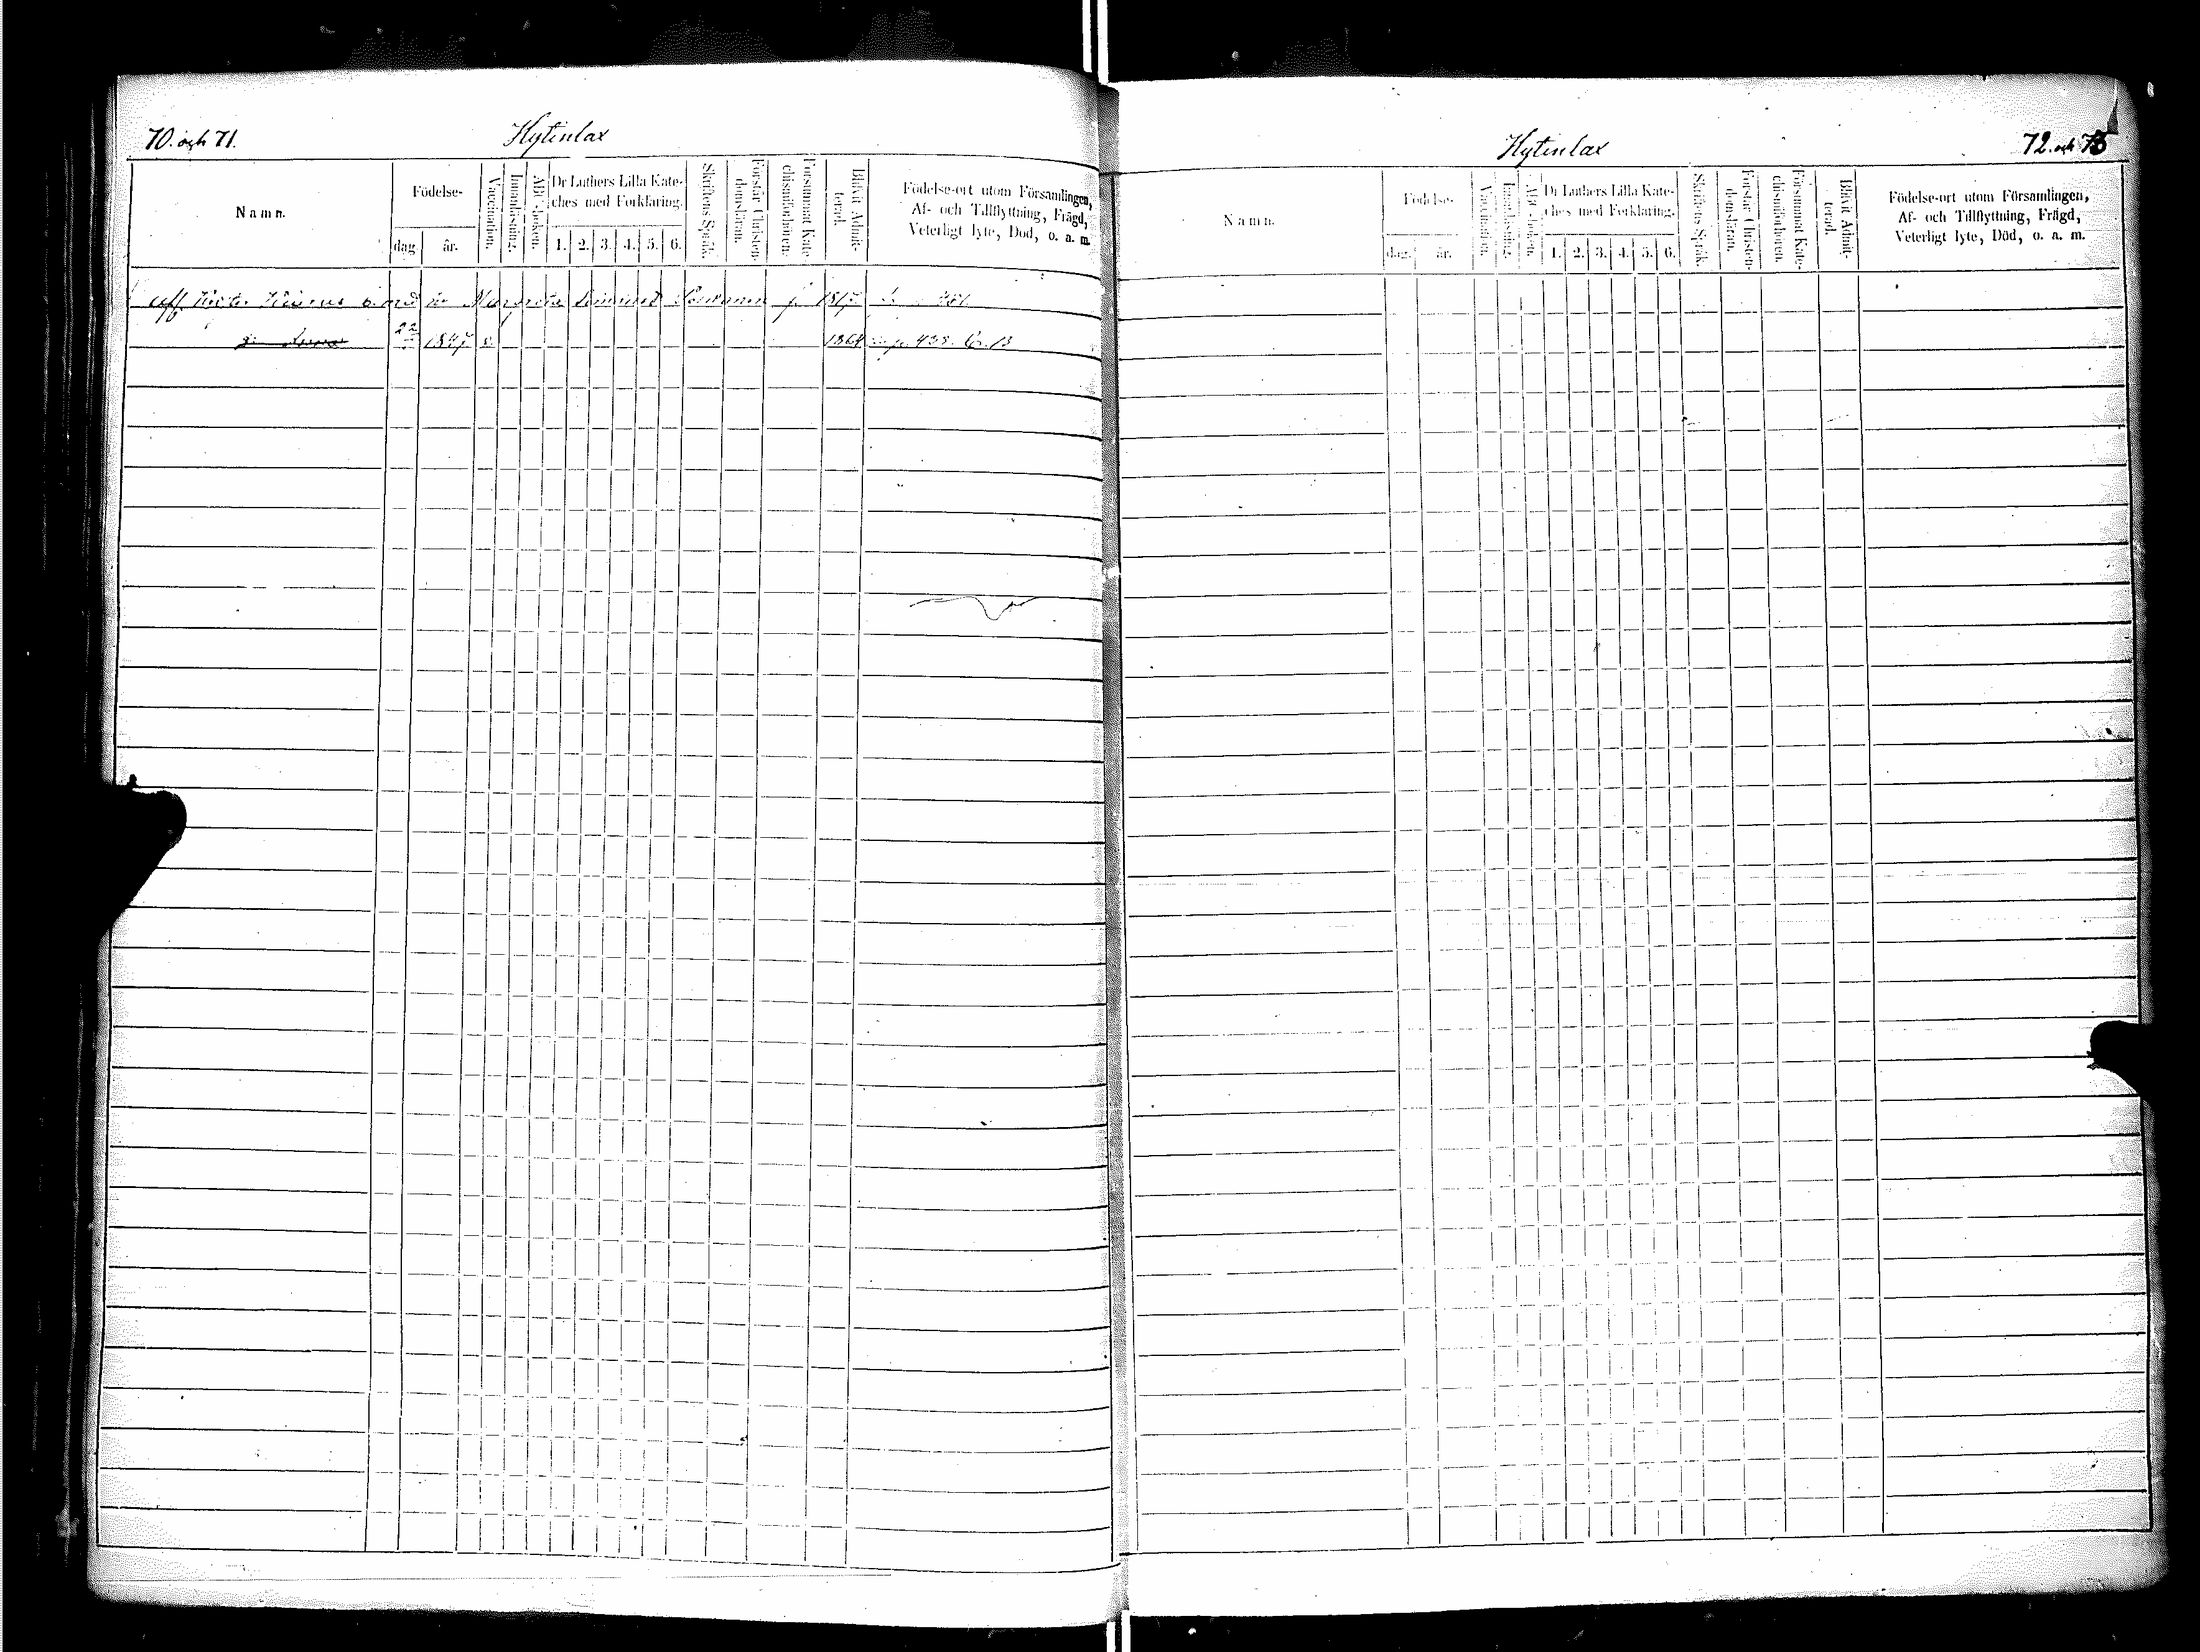 70. och 71.
Hytinlax
Namn.
Födelse-
dag.
år.
Vaccination.
Innanläsning.
ABC-boken.
Dr Luthers Lilla Kate-
ches med Förklaring.
1. 2. 3. 4. 5. 6.
Skriftens Språk.
Förstår Christen-
domsläran.
Försummat Kate-
chismiförhören.
Blifvit Admit-
terad.
Födelse-ort utom Församlingen,
Af- och Tillflyttning, Frägd,
Veterligt lyte, Död, o. a. m.
Margreta
22 1847 v. 1864 p. 438.
Hytinlax
72. och 73
Namn.
Födelse-
dag.
år.
Vaccination.
Innanläsning.
ABC-boken.
Dr Luthers Lilla Kate-
ches med Förklaring.
1. 2. 3. 4. 5. 6.
Skriftens Språk.
Förstår Christen-
domsläran.
Försummat Kate-
chismiförhören.
Blifvit Admit-
terad.
Födelse-ort utom Församlingen,
Af- och Tillflyttning, Frägd,
Veterligt lyte, Död, o. a. m.